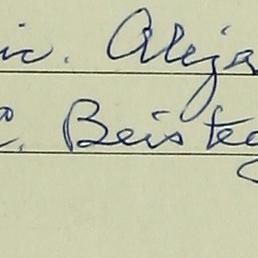 ic. Aleja
C. Beisteg